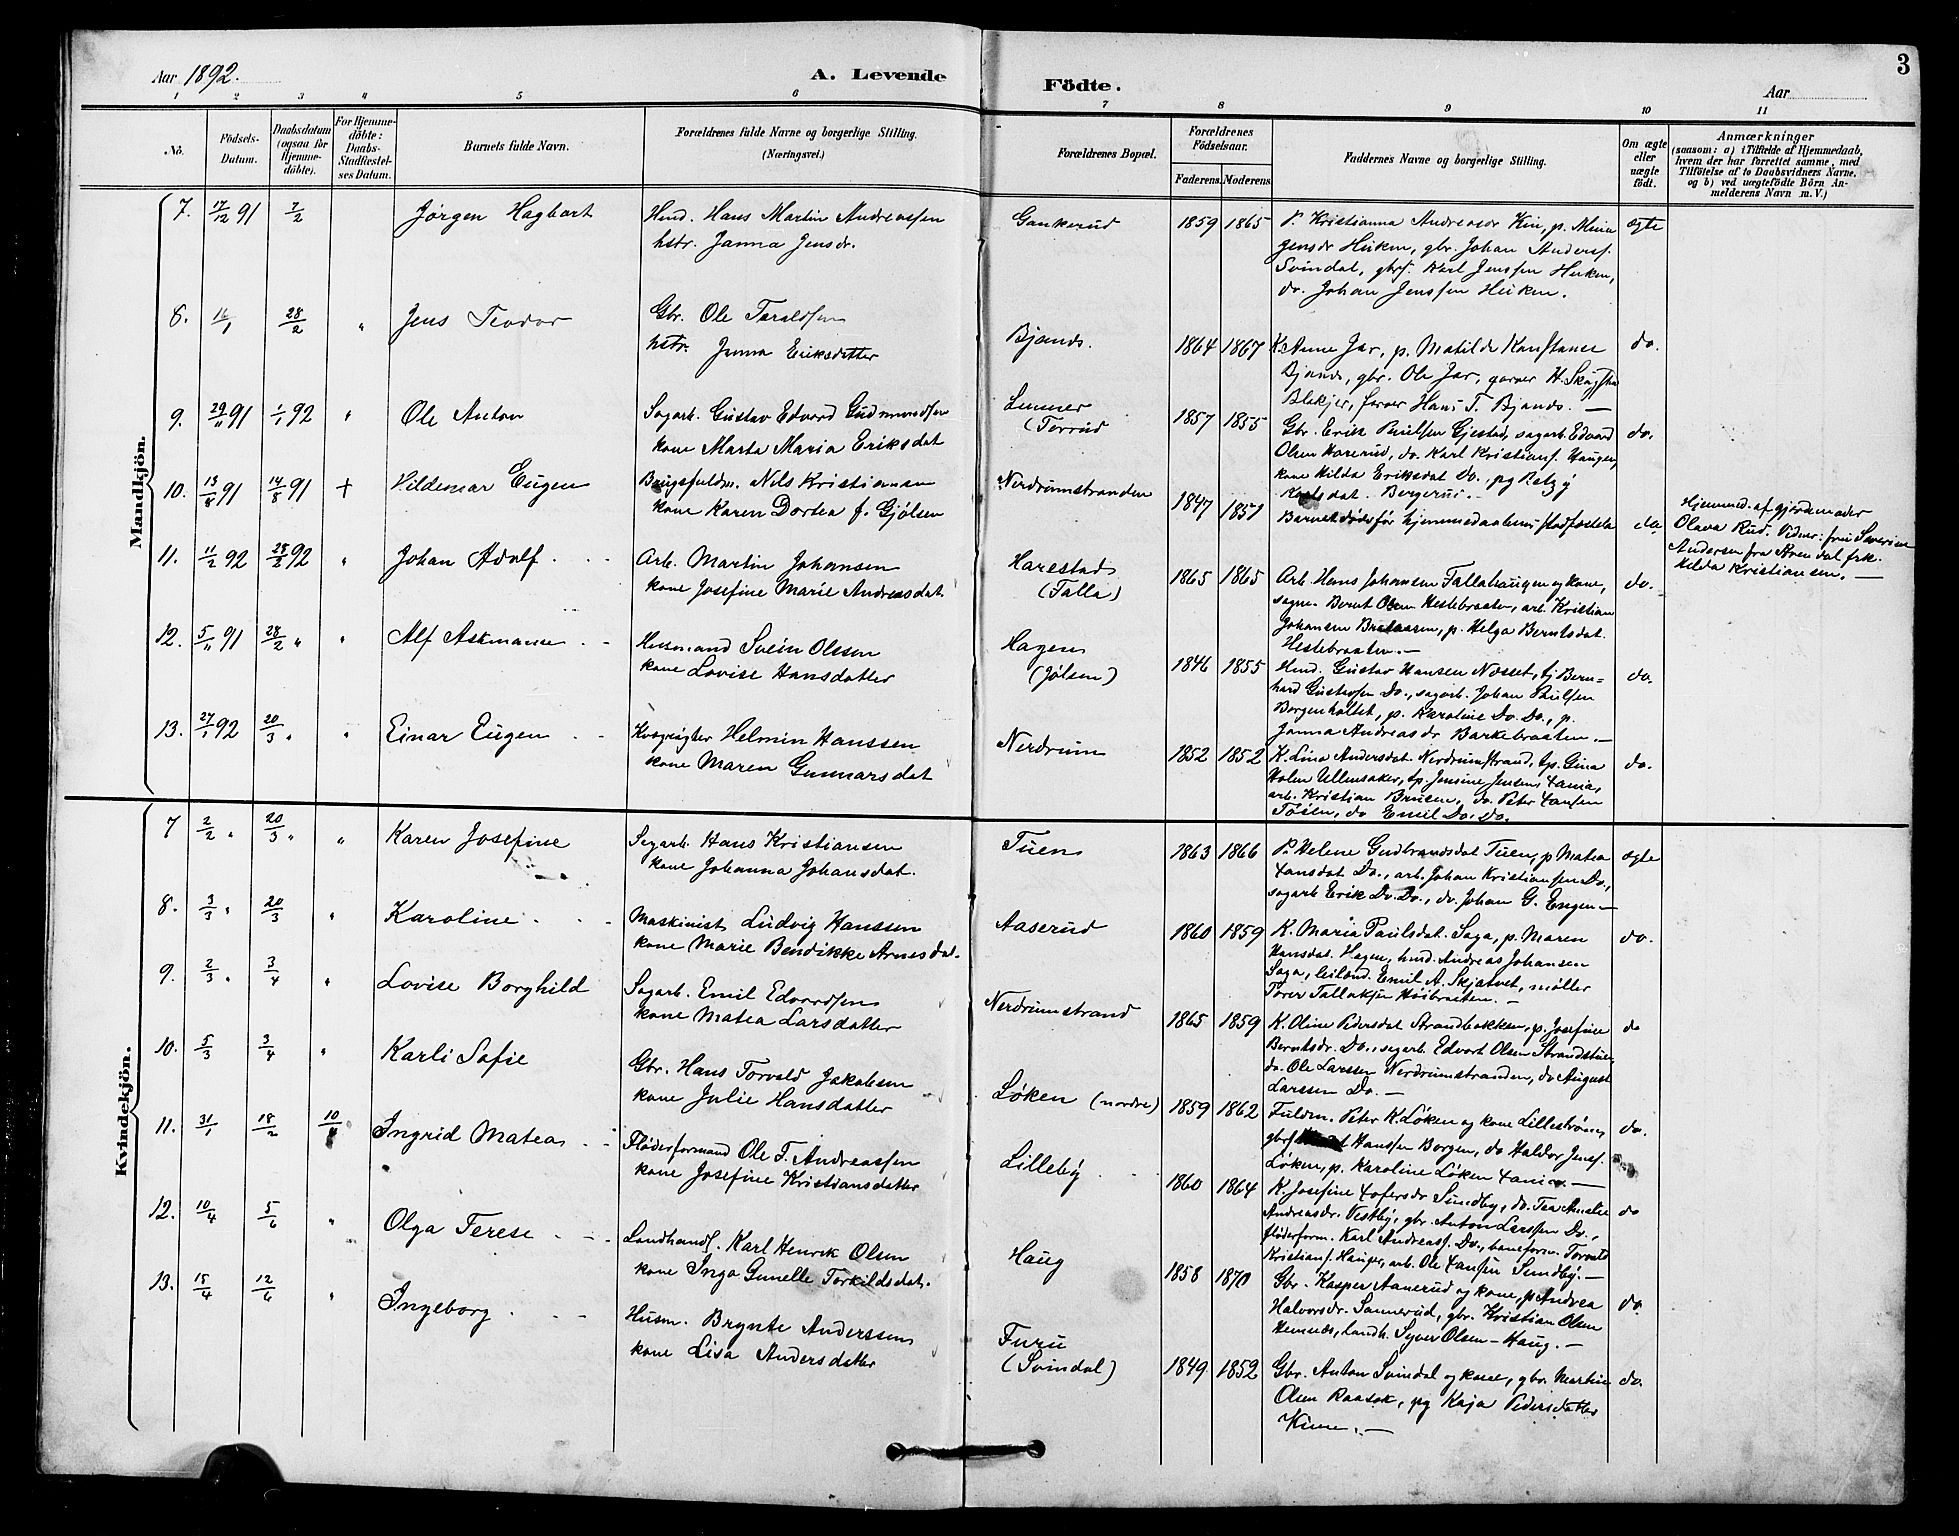 Aar 1892.
A. Levende Födte.
Aar
3
1 2 3 4 5 6 7 8 9 10 11
No.
Födsels-Datum.
Daabsdatum (ogsaa for Hjemme-döbte).
For Hjemme-döbte: Daabs-Stadfæstel-ses Datum.
Barnets fulde Navn.
Forældrenes fulde Navne og borgerlige Stilling.
(Næringsvei.)
Forældrenes Bopæl.
Forældrenes Födselsaar.
Faderens. Moderens.
Faddernes Navne og borgerlige Stilling.
Om ægte eller uægte födt.
Anmærkninger
(saasom: a) i Tilfælde af Hjemmedaab,
hvem der har forrettet samme, med
Tilföielse af to Daabsvidners Navne,
og b) ved uægtefödte Börn An-
melderens Navn m. V.)
Mandkjön.
7. 17/12 91 7/2 Jørgen Hagbart
Hmd. Hans Martin Andreassen
hstr. Janna Jensdr.
Gankerud 1859 1865
P. Kristianna Andreasdr Kin, p. Mina
Jensdr Huken, gbr. Johan Anderss.
Svindal, gbrs. Karl Jenssen Huken,
do. Johan Jenssen Huken.
ægte
8. 16/1 28/2 " Jens Teodor
Gbr. Ole Taraldsen
hstr. Janna Eriksdatter
Bjands. 1864 1867
K. Anne Jar, p. Matilde Konstance
Bjands, gbr. Ole Jar, garver H.
Blekjer, farver Hans T. Bjands. —
do.
9. 29/11 91 1/1 92 " Ole Anton
Sagarb. Gustav Edvard Gudmundsen
kone Marta Maria Eriksdat
(Torrud 1857 1855
Gbr. Erik Paulsen Gjestad, sagarb. Edvard
Olsen Harerud, do. Karl Kristians. Haugen,
kone Hilda Eriksdat Do., pg Betzy
Karlsdat. Bergerud. —
do.
10. 13/8 91 14/8 91 + Hildemar Eugen
Brugsfuldm. Nils Kristiansen
kone Karen Dortea f. Gjølsen
Nerdrumstranden 1847 1851
Barnet døde før hjemmedaabens stadfæstelse
do.
Hjemmed. af gjordemoder
Olava Rud. Vidner: fru Severine
Andersen fra Arendal frk.
Hilda Kristiansen. —
11. 11/2 92 28/2 92 " Johan Adolf.
Arb. Martin Johansen
kone Josefine Marie Andreasdat.
Harestad
(Talla) 1865 1865
Arb. Hans Johansen Tallahaugen og kone,
sagm. Bernt Olsen Hestebraaten, arb. Kristian
Johansen Brataasen, p. Helga Berntsdat.
Hestebraaten. —
do.
12. 5/11 91 28/2 " " Alf Askmanse
Husmand Svein Olssen
kone Lovise Hansdatter
Hagen
(Jølsen) 1846 1855
Hmd. Gustav Hansen Næset, tj Bern=
hard Gustafsen Do., sagarb. Johan Paulsen
Borgenholtet, p. Karoline Do. Do., p.
Janna Andreasdr Barkebraaten. —
do.
13. 27/1 92 20/3 " " Einar Eugen
Kvægrøgter Helmin Hanssen
kone Maren Gunnarsdat
Nerdrum 1852 1852
K. Lina Andersdat. Nerdrumstrand, tp. Gina
Holen Ullensaker, tp. Jensine Jensen Fania,
arb. Kristian Bruten, do. Peter Hansen
Tøien, do Emil Do. Do.
do.
Kvindekjön.
7 2/2 " 20/3 " " Karen Josefine
Sagarb. Hans Kristiansen
kone Johanna Johansdat.
Tuen 1863 1866
P. Helene Gudbrandsdat Tuen, p Matea
Hansdat Do., arb. Johan Kristiansen Do.,
sagarb Erik Do. Do., do. Johan G. Engen —
ægte
8. 3/3 " 20/3 " Karoline
Maskinist Ludvig Hanssen
kone Marie Bendikke Arnesdat.
Aaserud 1860 1859
K. Maria Paulsdat. Saga, p. Maren
Hansdat. Hagen, hmd. Andreas Johansen
Saga, leilænd. Emil A. Skjatvet, møller
Torer Tallaksen Høibraaten. —
do.
9. 2/3 " 3/4 " Lovise Borghild
Sagarb. Emil Edvardsen
kone Matea Larsdatter
Nerdrumstrand 1865 1859
K. Oline Pedersdat Strandbakken, p. Josefine
Berntsdr. Do., sagarb. Edvart Olsen Strandstuen,
do. Ole Larssen Nerdrumstranden, do August
Larssen Do. —
do
10. 5/3 3/4 " Karli Sofie
Gbr. Hans Torvald Jakobsen
kone Julie Hansdatter
Løken (nordre) 1859 1862
Fuldm. Peter K. Løken og kone Lillestrøm,
gbrs Hanssen Borgen, do Haldor Jenss.
Løken, p. Karoline Løken —
do.
11. 31/1 18/2 10/ Ingrid Matea
Fløderformand Ole T. Andreassen
kone Josefine Kristiansdatter
Lilleby 1860 1864
K. Josefine Sundby, do. Tea Amalie
Andreasdr. Vestby, gbr. Anton Larssen Do.,
fløderform. Karl Andreass. Do., baneform. Torvald
Kristians. Hauger, arb. Ole Hansen Sundby. —
do
12. 10/4 5/6 " Olga Terese
Landhandl. Karl Henrik Olsen
kone Inga Gunelle Torkildsdat.
Haug 1858 1870
Gbr. Kasper Aanerud og kone, p Andrea
Halvorsdr. Sannerud, gbr. Kristian Olsen
Hemnes, landh. Syver Olsen — Haug. —
do
13. 15/4 12/6 " Ingeborg
Husm. Brynte Anderssen
kone Lisa Andersdatter
Furu
(Svindal) 1849 1852
Gbr. Anton Svindal og kone, gbr. Martin
Olsen Raasok, pg Kaja Pedersdatter
Kinne. —
do.